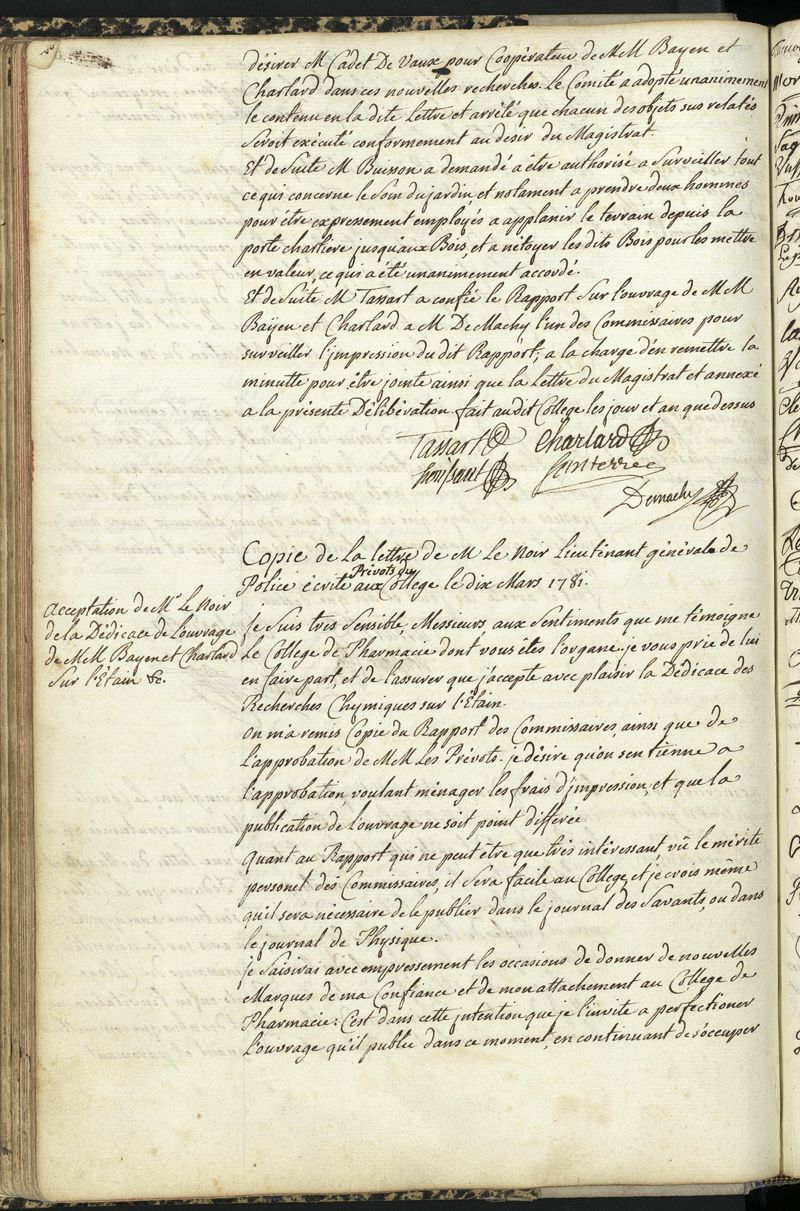 désirer M Cadet De Vaux pour Coopérateur de MM Bayen et
Charlard dans ces nouvelles recherches. Le Comité a adopté unanimement
le contenu en la dite Lettre et arrêté que chacun des objets sus relatés
Seroit exécuté conformement au désir du Magistrat.
Et de Suite M Buisson a demandé a être authorisé a Surveiller tout
ce qui concerne le Soin du jardin, et notament a prendre deux hommes
pour être expressement employés a applanir le terrain depuis la
porte chartiere jusqu'aux Bois, et a nétoyer les dits Bois pour les mettre
en valeur, ce qui a été unanimement accordé.
Et de Suite M Tassart a confié le Rapport Sur l'ouvrage de MM
Baÿen et Charlard a M DeMachy l'un des Commissaires pour
surveiller l'jmpression du dit Rapport, a la charge d'en remettre la
minutte pour être jointe ainsi que la Lettre du Magistrat et annexé
a la présente Délibération. fait au dit College les jour et an que dessus
Tassart Charlard
Demachy
Copie de la lettre de M Le Noir Lieutenant générale de
Prévots du
Police écrite aux College le dix Mars 1781.
acceptation de Mr Le Noir
de la Dédicace de l'ouvrage
de MM Bayen et Charlard
Sur l'Etain &c.
je Suis très Sensible, Messieurs aux Sentiments que me témoigne
Le College de Pharmacie dont vous êtes l'organe. je vous prie de lui
en faire part, et de l'assurer que j'accepte avec plaisir la Dédicace des
Recherches Chymiques sur l'Etain.
on m'a remis Copie du Rapport des Commissaires, ainsi que de
l'approbation de MM Les Prévots. je désire qu'on s'en tienne a
l'approbation, voulant ménager les frais d'jmpression, et que la
publication de l'ouvrage ne soit point différée.
Quant au Rapport qui ne peut être que très intéressant, vû le mérite
personel des Commissaires, il Sera facile au College, et je crois même
qu'il sera nécessaire de le publier dans le journal des Savants, ou dans
le journal de Physique.
je Saisirai avec empressement les occasions de donner de nouvelles
Marques de ma Confiance et de mon attachement au College de
Pharmacie: C'est dans cette jntention que je l'invite a perfectioner
l'ouvrage qu'il publie dans ce moment, en continuant de s'occuper